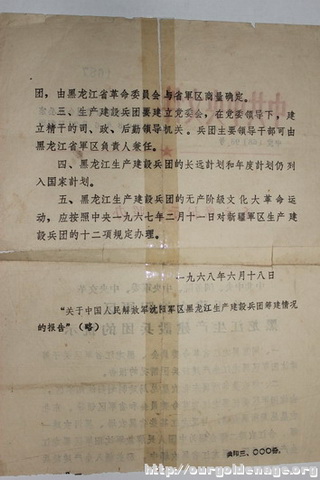 团，由黑龙江省革命委員会与省军区商量确定。
三、生产建設兵团要建立党委会，在党委領导下，建
立精干的司、政、后勤領导机关。兵团主要領导干部可由
黑龙江省軍区負責人兼任。
四、黑龙江生产建設兵团的长远計划和年度計划仍列
入国家計划。
五、黑龙江生产建設兵团的无产阶级文化大革命运
动，应按照中央一九六七年二月十一日对新疆軍区生产建
設兵团的十二項規定办理。
一九六八年六月十八日
“关于中国人民解放軍沈阳軍区黑龙江生产建設兵团筹建情况
的报告”（略）
共印三、〇〇〇份。
http://ourgoldenage.org